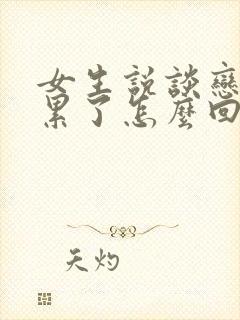 女生說談戀
累了怎麼回
天灼